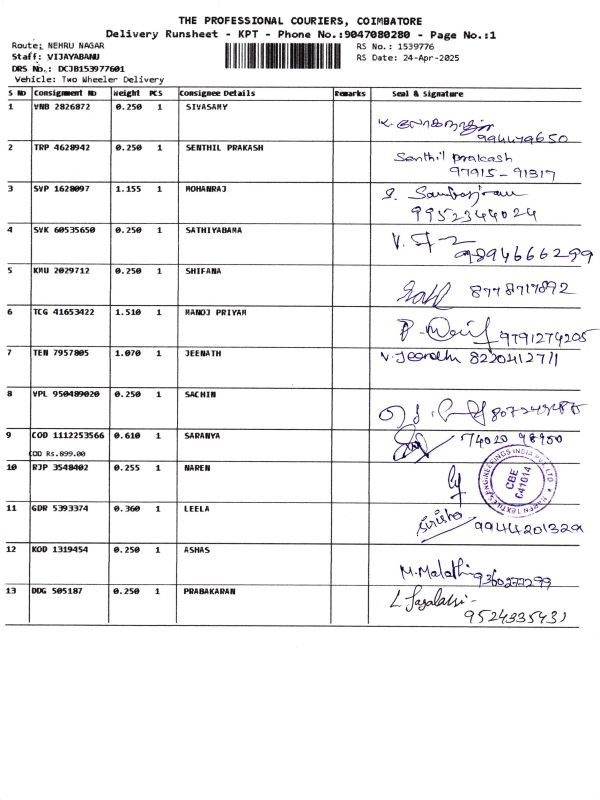 THE PROFESSIONAL COURIERS, COIMBATORE
Delivery Runsheet - KPT - Phone No.:9047080280 - Page No.:1
Route: NEHRU NAGAR
RS No.: 1539776
Staff: VIJAYABANU
RS Date: 24-Apr-2025
DRS No.: DCJB153977601
Vehicle: Two Wheeler Delivery
S No Consignment No Weight PCS Consignee Details Remarks Seal & Signature
1 VNB 2826872 0.250 1 SIVASAMY
2 TRP 4628942 0.250 1 SENTHIL PRAKASH Senthil prakash
97915-91317
3 SVP 1628097 1.155 1 MOHANRAJ
9952344024
4 SVK 60535650 0.250 1 SATHIYABAMA
9894666299
5 KMU 2029712 0.250 1 SHIFANA
8778717892
6 TCG 41653422 1.510 1 MANOJ PRIYAR
9791274205
7 TEN 7957805 1.070 1 JEENATH
8 VPL 950489020 0.250 1 SACHIN
9 COD 1112253566 0.610 1 SARANYA 74020 98950
COD Rs.899.00
10 RJP 3548402 0.255 1 NAREN
CBE
641014
11 GDR 5393374 0.360 1 LEELA
9944201329
12 KOD 1319454 0.250 1 ASHAS
M.Malathi 9360277299
13 DDG 505187 0.250 1 PRABAKARAN
9524335431